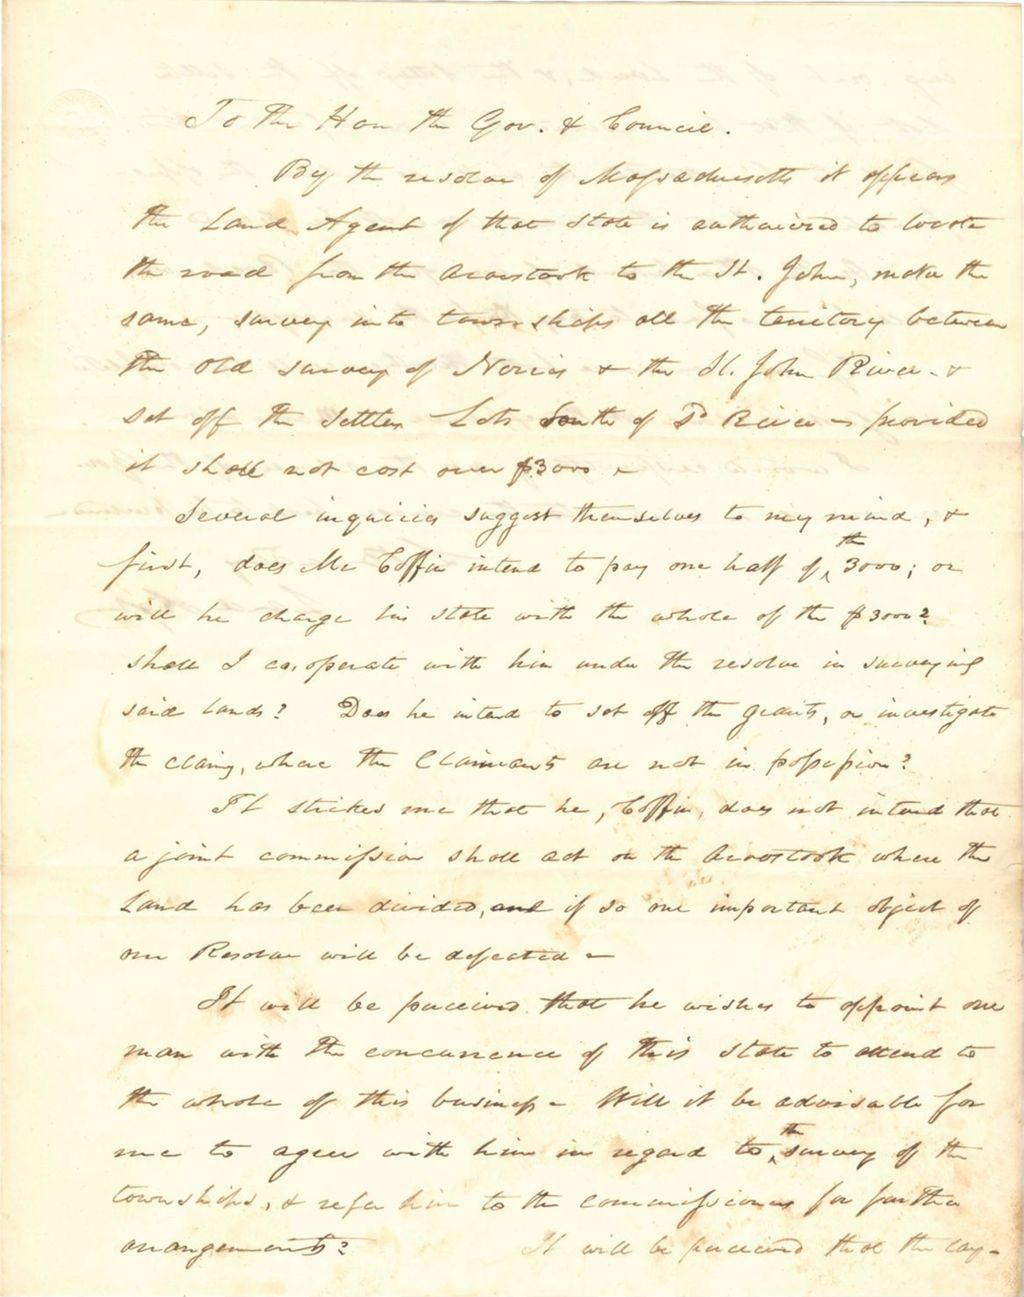 To the Hon the Gov. & Council.
By the resolve of Massachusetts it appears
the Land Agent of that State is authorized to locate
the road from the Aroostook to the St. John, make the
same, survey into townships all the territory between
the old survey of Norris & the St. John River - &
set off the settlers Lots South of Sd River - provided
it shall not cost over $3000 -
Several inquiries suggest themselves to my mind, &
first, does Mr Coffin intend to pay one half of the 3000; or
will he charge his State with the whole of the $3000?
shall I co,operate with him under the resolve in surveying
said lands? Does he intend to set off the grants, or investigate
the claims, where the Claimants are not in possession?
It strikes me that he, Coffin, does not intend that
a joint commission shall act on the Aroostook where the
Land has been divided, and if so one important object of
our Resolve will be defeated -
It will be perceived that he wishes to appoint one
man with the concurrence of this State to attend to
the whole of this business - Will it be advisable for
me to agree with him in regard to the survey of the
townships, & refer him to the commissioners for further
arrangements? It will be perceived that the lay-